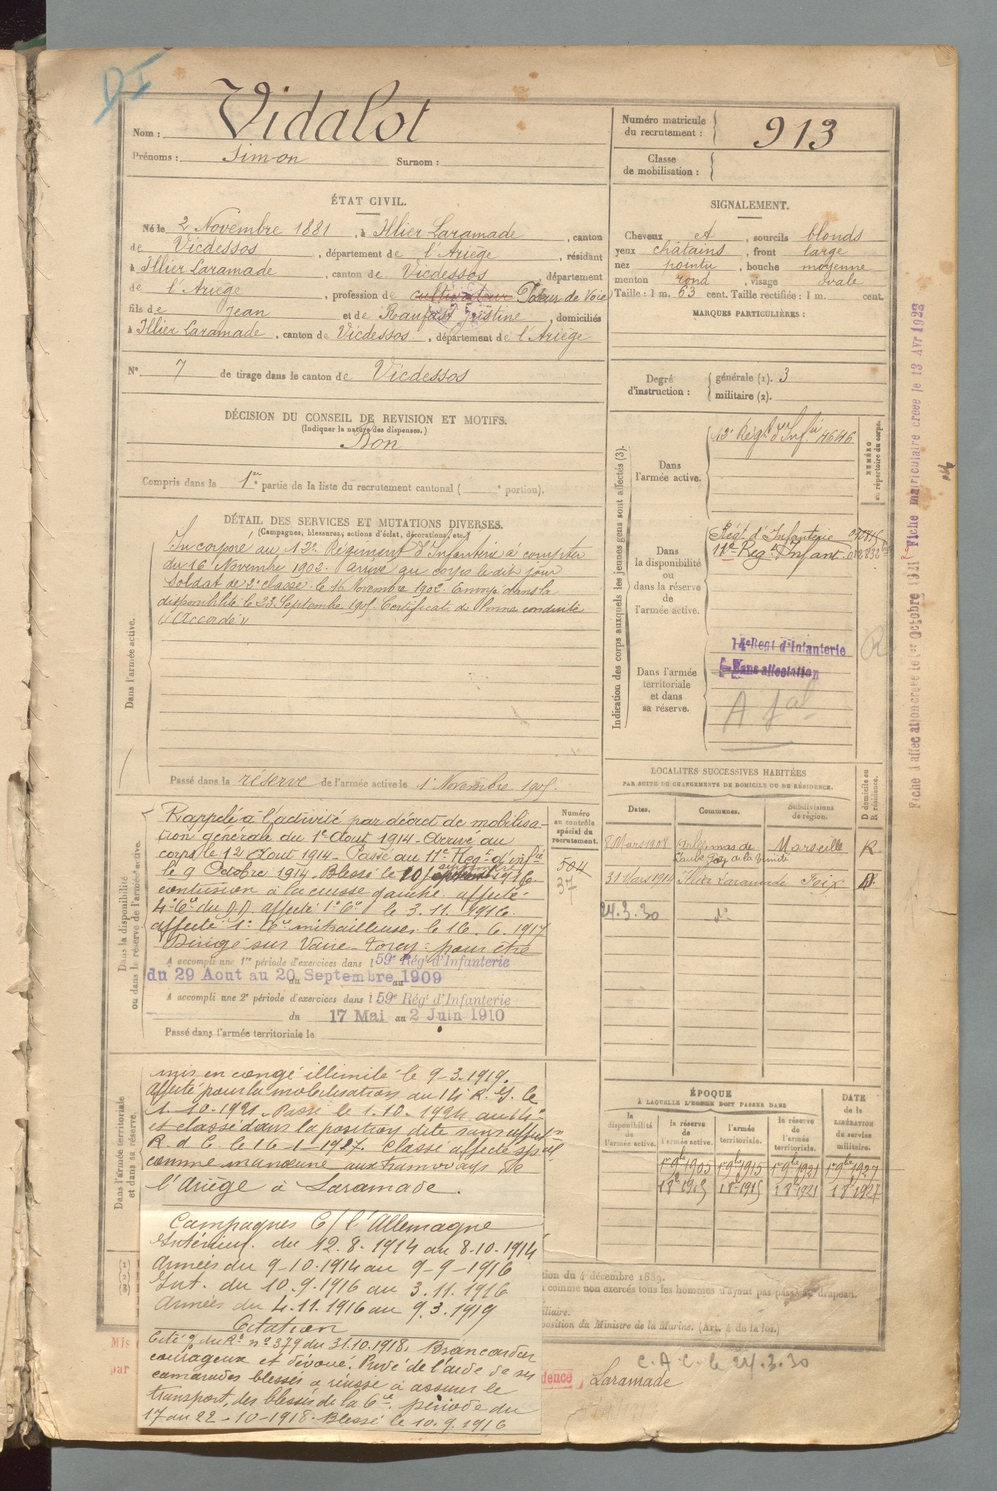 DI
Nom : Vidalot
Prénoms : Simon Surnom :
Numéro matricule du recrutement : 913
Classe de mobilisation :
ÉTAT CIVIL.
Né le 2 Novembre 1881, à Illier Laramade, canton
de Vicdessos, département de l'Ariège, résidant
à Illier Laramade, canton de Vicdessos, département
de l'Ariège, profession de cultivateur Poseur de Voie
fils de Jean et de Justine, domiciliés
à Illier Laramade, canton de Vicdessos, département de l'Ariège
N° 7 de tirage dans le canton de Vicdessos
SIGNALEMENT.
Cheveux et, sourcils blonds
yeux châtains, front large
nez pointu, bouche moyenne
menton rond, visage ovale
Taille : 1 m. 63 cent. Taille rectifiée : 1 m. cent.
MARQUES PARTICULIÈRES :
Degré d'instruction : générale (1). 3
militaire (2).
DÉCISION DU CONSEIL DE REVISION ET MOTIFS.
(Indiquer la nature des dispenses.)
Bon
Compris dans la 1re partie de la liste du recrutement cantonal ( e portion).
DÉTAIL DES SERVICES ET MUTATIONS DIVERSES.
(Campagnes, blessures, actions d'éclat, décorations, etc.)
Dans l'armée active.
Incorporé au 12e Régiment d'Infanterie à compter
du 16 Novembre 1902. Arrivé au corps le dit jour
Soldat de 2e classe le 16 Novembre 1902. Envoyé dans la
disponibilité le 23 Septembre 1905. Certificat de bonne conduite
"Accordé"
Passé dans la réserve de l'armée active le 1r Novembre 1905.
Indication des corps auxquels les jeunes gens sont affectés (3).
NUMÉRO au répertoire du corps.
Dans l'armée active.
12e Régt d'Infie 4646
Dans la disponibilité ou dans la réserve de l'armée active.
Régt d'Infanterie
11e Rég. d'Infant.
Dans l'armée territoriale et dans sa réserve.
14e Regt d'Infanterie
Sans affectation
A fal
R
Fiche d'affectation créée le 1er Octobre 1921 Fiche matriculaire créée le 13 Avr 1922
Dans la disponibilité ou dans la réserve de l'armée active.
Rappelé à l'activité par décret de mobilisa-
tion générale du 1er Aout 1914. Arrivé au
corps le 12 Aout 1914. Passé au 11e Régt d'Infie
le 9 Octobre 1914. Blessé le 10 septembre 1916
contusion à la cuisse gauche. affecté
4e Cie du affecté 1e Cie le 3.11.1916
affecté 1e Cie mitrailleuses le 16.6.1917
Dirigé sur Vaire-Torcy pour être
A accompli une 1re période d'exercices dans l 59e Régt d'Infanterie
du 29 Aout au 20 Septembre 1909
A accompli une 2e période d'exercices dans l 59e Régt d'Infanterie
du 17 Mai au 2 Juin 1910
Passé dans l'armée territoriale le
Numéro au contrôle spécial du recrutement.
504
37
LOCALITÉS SUCCESSIVES HABITÉES
PAR SUITE DE CHANGEMENTS DE DOMICILE OU DE RÉSIDENCE.
Dates. Communes. Subdivisions de région. D domicile ou R résidence.
9 Mars 1908 Marseille R
31 Mars 1914 Illier Laramade Foix D
24.3.30 do
Dans l'armée territoriale et dans sa réserve.
mis en congé illimité le 9-3.1919.
affecté pour la mobilisation au 14e R.I. le
1-10-1921. Passé le 1.10.1924 au
et classé dans la position dite sans affectn
R.d.C. le 16-1-1927. Classé affecté spal
comme manœuvre aux tramways de
l'Ariège à Laramade.
ÉPOQUE
À LAQUELLE L'HOMME DOIT PASSER DANS
la disponibilité de l'armée active. la réserve de l'armée active. l'armée territoriale. la réserve de l'armée territoriale. DATE de la LIBÉRATION du service militaire.
1r 9bre 1905 1r 9bre 1915 1r 9bre 1921 1r 9bre 1927
1 8bre 1905 1 8bre 1915 1 8bre 1921 1 8bre 1927
Campagnes C/ l'Allemagne
Intérieur. du 12.8.1914 au 8-10-1914
Armées du 9-10-1914 au 9-9-1916
Int. du 10.9.1916 au 3.11.1916
Armées du 4.11.1916 au 9.3.1919
Citation
Cité O. du Rt n° 379 du 31.10.1918. Brancardier
courageux et dévoué. Privé de l'aide de ses
camarades blessés a réussi à assurer le
transport des blessés de la Cie. période du
17 au 22-10-1918. Blessé le 10.9.1916
tion du 4 décembre 1889.
comme non exercés tous les hommes n'ayant pas passé au drapeau.
position du Ministre de la Marine. (Art. 4 de la loi.)
C.A.C. le 24.3.30
Mis
par
dence Laramade